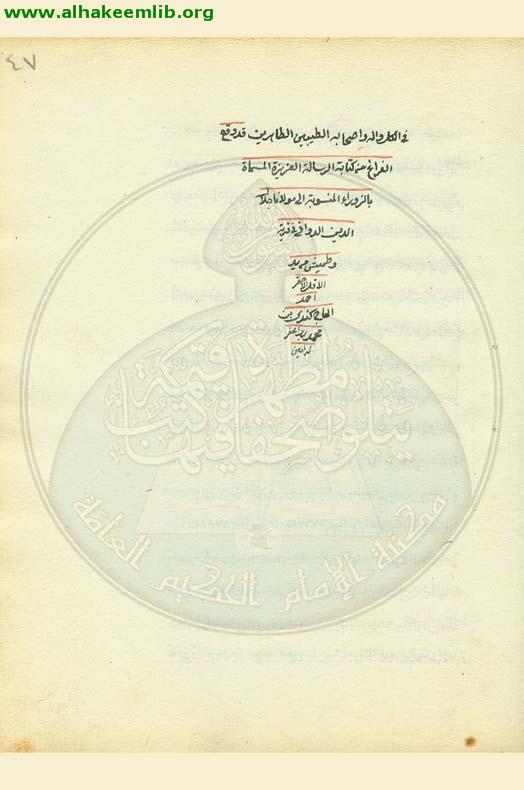 www.alhakeemlib.org
٤٧
في الكل واله واصحابه الطيبين الطاهرين قد وقع
الفراغ من كتابة الرسالة العزيزة المسماة
بالزوراء المنسوبة الى مولانا جلال
الدين الدواني في قرية
الاقل الاحقر
احمد
الحاج بن
محمد
رسول الله
يتلو صحفا مطهرة فيها كتب قيمة
مكتبة الإمام الحكيم العامة